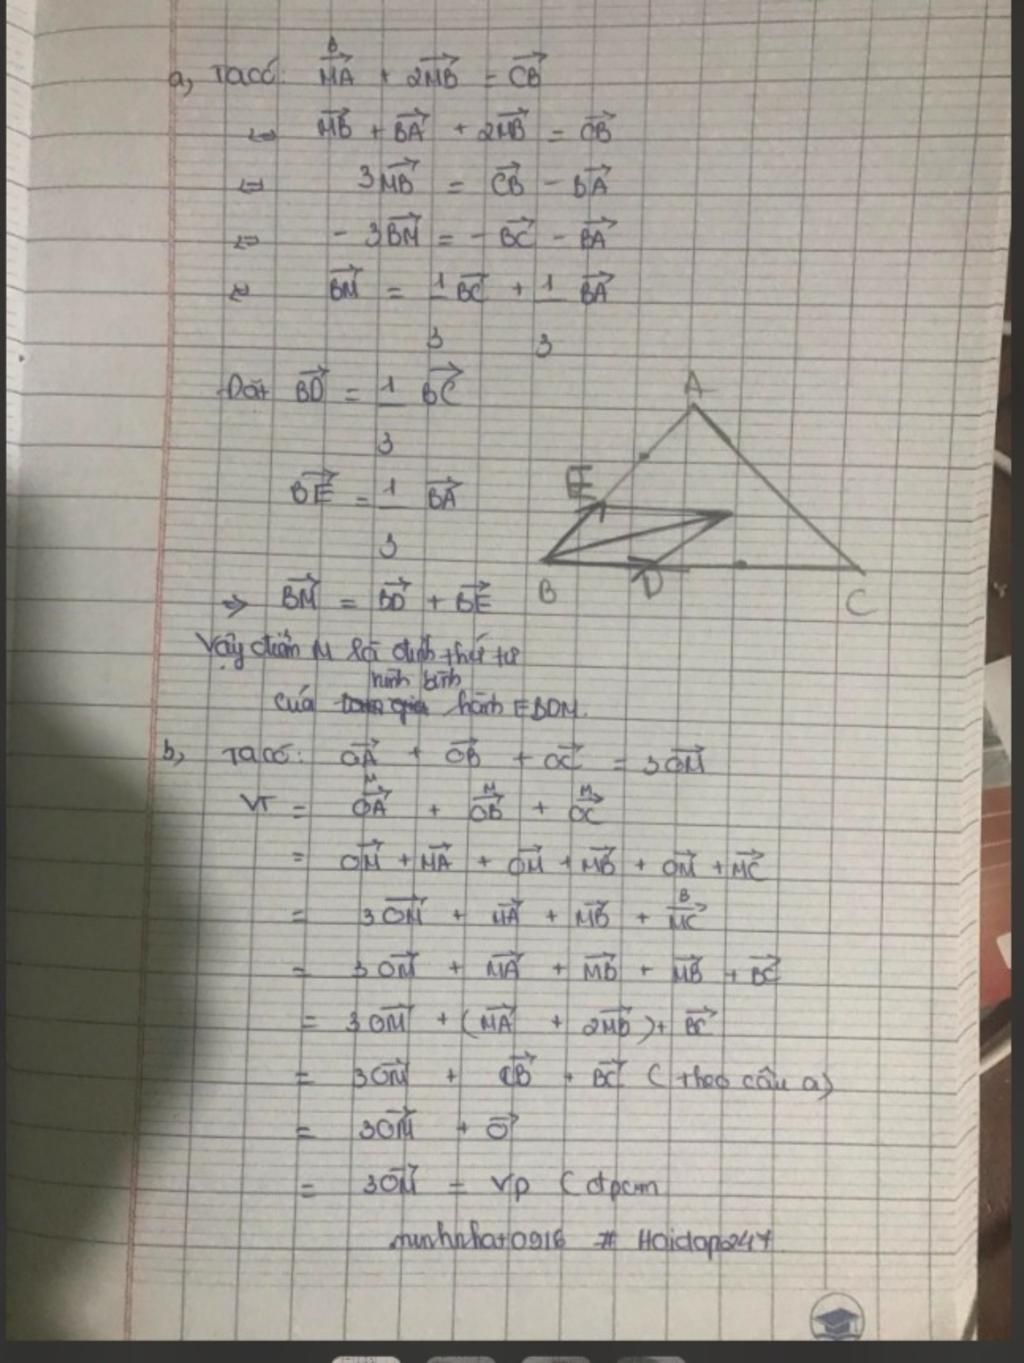 a, Ta có: MA→ + 2MB→ = CB→
B
⇔ MB→ + BA→ + 2MB→ = CB→
⇔ 3MB→ = CB→ - BA→
⇔ - 3BM→ = - BC→ - BA→
⇔ BM→ = 1/3 BC→ + 1/3 BA→
Đặt BD→ = 1/3 BC→
BE→ = 1/3 BA→
⇒ BM→ = BD→ + BE→
Vậy điểm M là đỉnh thứ tư
của hình bình hành EBDM.
A
E
B
D
C
b, Ta có: OA→ + OB→ + OC→ = 3OM→
M M M
VT = OA→ + OB→ + OC→
= OM→ + MA→ + OM→ + MB→ + OM→ + MC→
B
= 3OM→ + MA→ + MB→ + MC→
= 3OM→ + MA→ + MB→ + MB→ + BC→
= 3OM→ + (MA→ + 2MB→) + BC→
= 3OM→ + CB→ + BC→ ( theo câu a)
= 3OM→ + O→
= 3OM→ = VP (đpcm
minhnhat0916 # Hoidap247